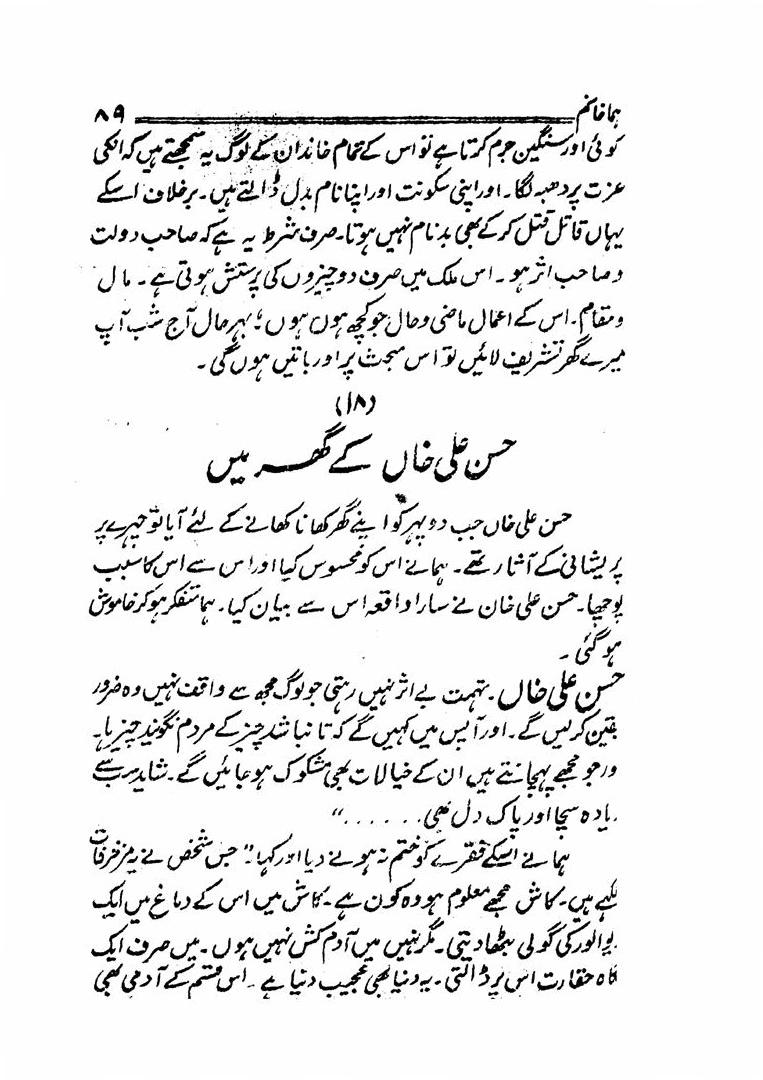 ہما خانم ۸۹
کوئی اور سنگین جرم کرتا ہے تو اس کے تمام خاندان کے لوگ یہ سمجھتے ہیں کہ انکی
عزت پر دھبہ لگا۔ اور اپنی سکونت اور اپنا نام بدل ڈالتے ہیں۔ برخلاف اسکے
یہاں قاتل قتل کرکے بھی بدنام نہیں ہوتا۔ صرف شرط یہ ہے کہ صاحب دولت
و صاحب اثر ہو۔ اس ملک میں صرف دو چیزوں کی پرستش ہوتی ہے۔ مال
و مقام۔ اس کے اعمال ماضی و حال جو کچھ ہوں ہوں؛ بہر حال آج شب آپ
میرے گھر تشریف لائیں تو اس مبحث پر اور باتیں ہوں گی۔
(۱۸)
حسن علی خاں کے گھر میں
حسن علی خاں جب دوپہر کو اپنے گھر کھانا کھانے کے لئے آیا تو چہرے پر
پریشانی کے آثار تھے۔ ہمانے اس کو محسوس کیا اور اس سے اس کا سبب
پوچھا۔ حسن علی خان نے سارا واقعہ اس سے بیان کیا۔ ہما متفکر ہوکر خاموش
ہو گئی۔
حسن علی خاں۔ تہمت بے اثر نہیں رہتی جو لوگ مجھ سے واقف نہیں وہ ضرور
یقین کرلیں گے۔ اور آپس میں کہیں گے کہ تا نباشد چیز کے مردم نگویند چیزہا۔
ورجو مجھے پہچانتے ہیں ان کے خیالات بھی مشکوک ہو جائیں گے۔ شاید سب سے
یادہ سچا اور پاک دل بھی . . . . . . "
ہما نے اسکے فقرے کو ختم نہ ہونے دیا اور کہا۔" جس شخص نے یہ مزخرفات
لکھے ہیں۔ کاش مجھے معلوم ہو وہ کون ہے۔ کاش میں اس کے دماغ میں ایک
یوالور کی گولی بٹھا دیتی۔ مگر نہیں میں آدم کش نہیں ہوں۔ میں صرف ایک
گاہ حقارت اس پر ڈالتی۔ یہ دنیا بھی عجیب دنیا ہے۔ اس قسم کے آدمی بھی